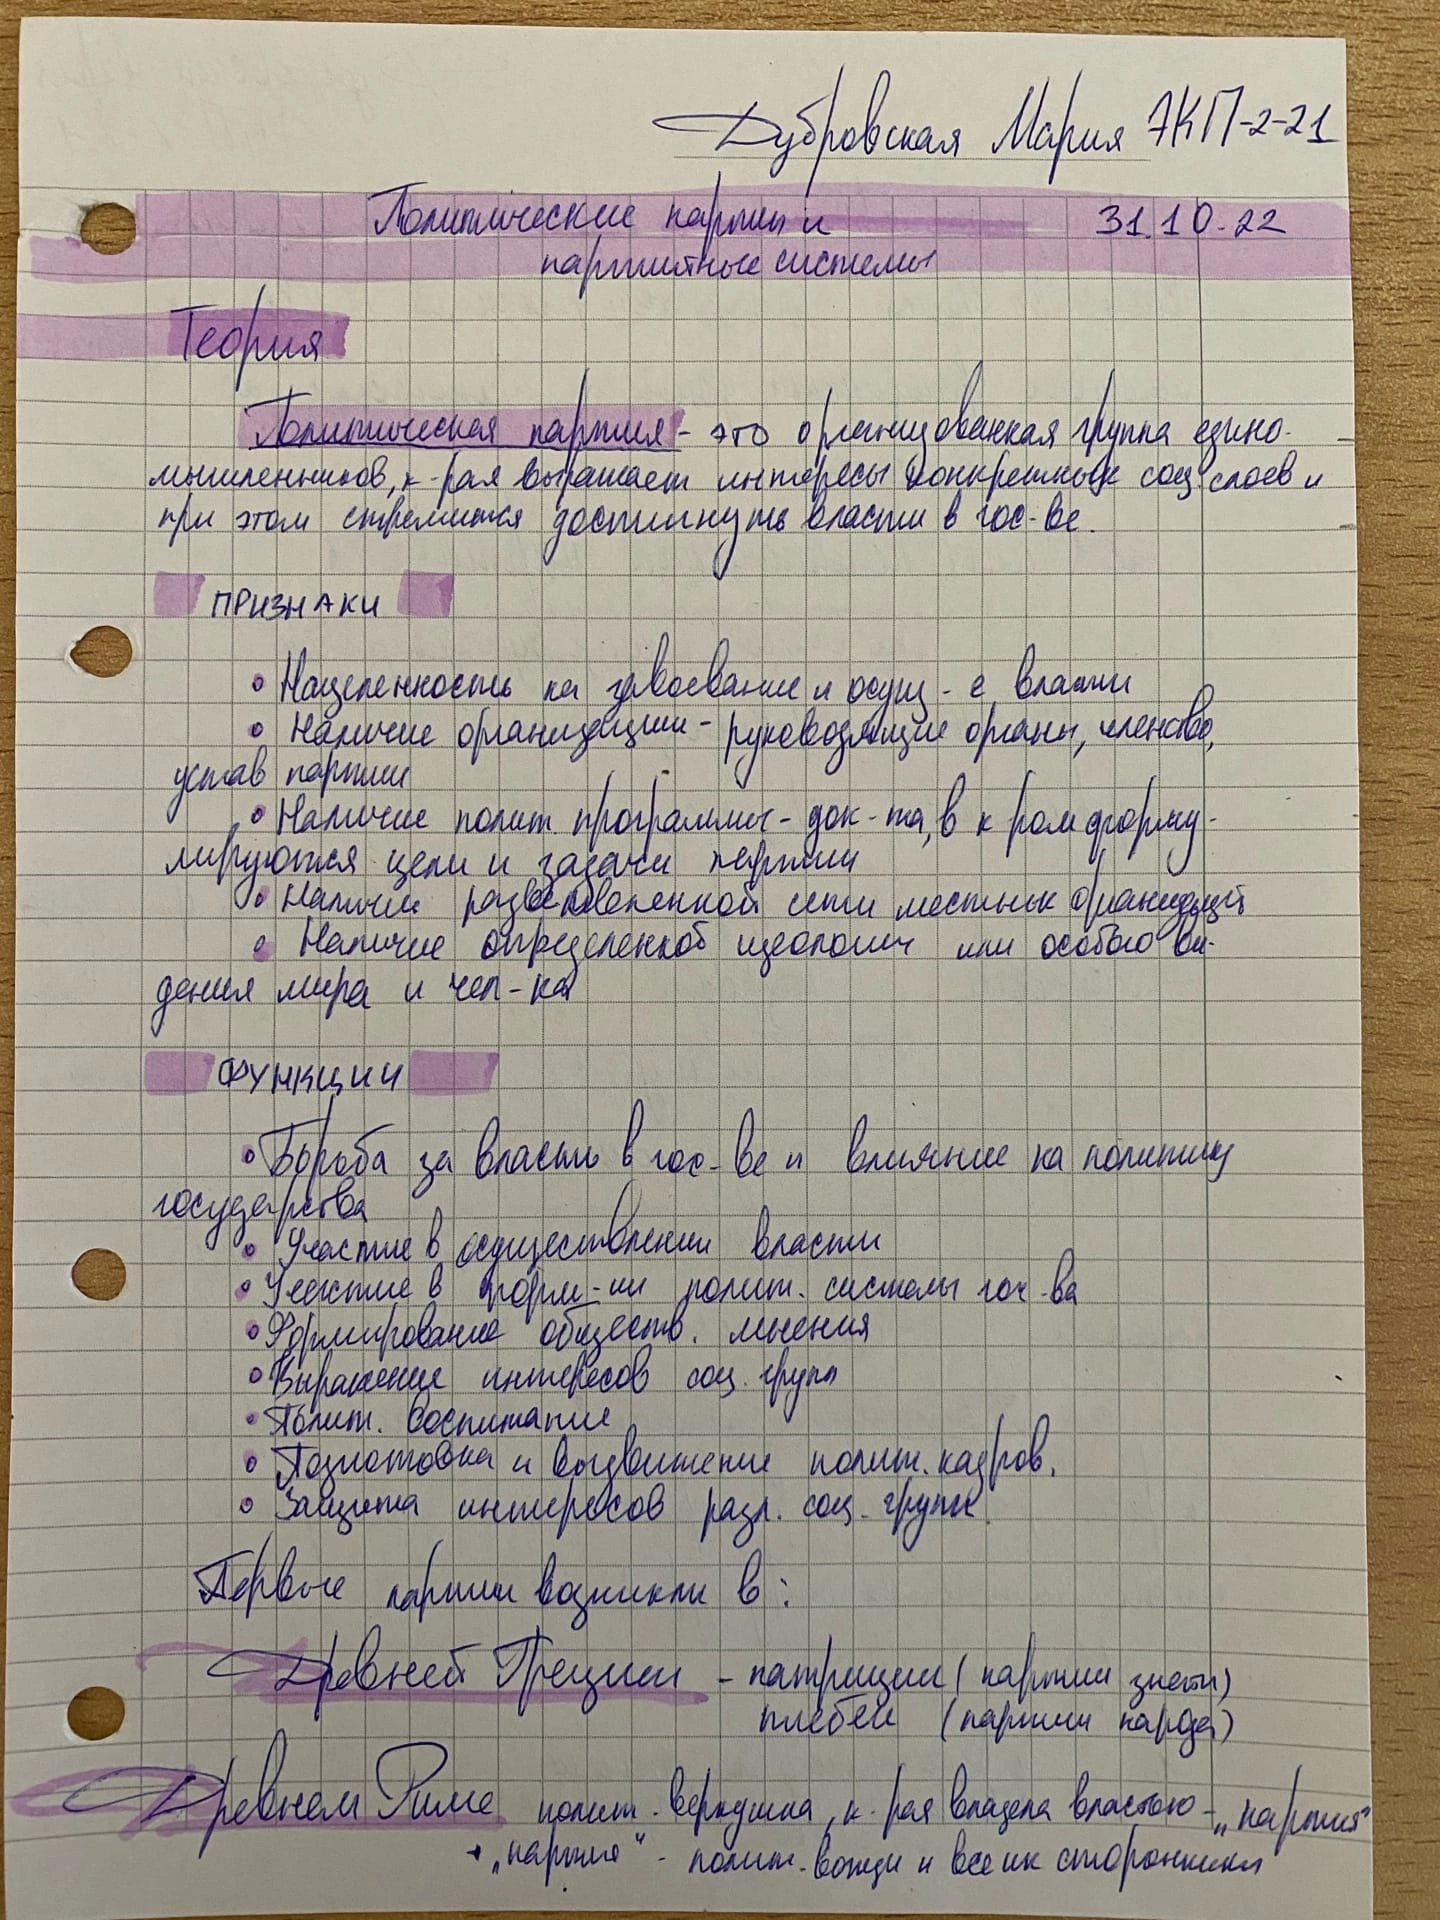 Дубровская Мария ЭКП-2-21
Политические партии и 31.10.22
партийные системы
Теория
Политическая партия - это организованная группа едино-
мышленников, к-рая выражает интересы конкретных соц слоев и
при этом стремится достигнуть власти в гос-ве.
ПРИЗНАКИ
• Нацеленность на завоевание и осущ-е власти
• Наличие организации - руководящие органы, членство,
устав партии
• Наличие полит. программы - док-та, в к ром форму-
лируются цели и задачи партии
• Наличие разветвленной сети местных организаций
• Наличие определенной идеологии или особого ви-
дения мира и чел-ка
ФУНКЦИИ
• Борьба за власть в гос-ве и влияние на политику
государства
• Участие в осуществлении власти
• Участие в форм-ии полит. системы гос-ва
• Формирование обществ. мнения
• Выражение интересов соц. групп
• Полит. воспитание
• Подготовка и выдвижение полит. кадров.
• Защита интересов разл. соц. групп.
Первые партии возникли в:
Древней Греции - патриции (партии знати)
плебеи (партии народа)
Древнем Риме полит. верхушка, к-рая владела властью - „партия"
→ „партия" - полит. вожди и все их сторонники